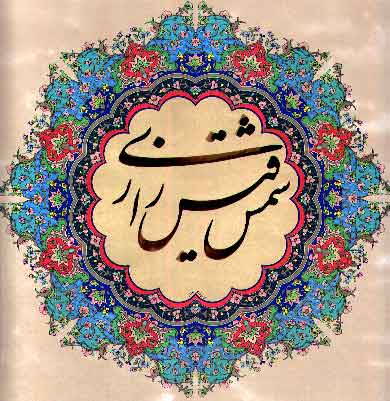 شمس قیس رازی